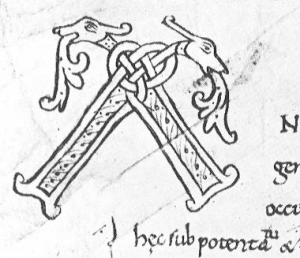 N
gen
occu
hęc sub potenta tu &